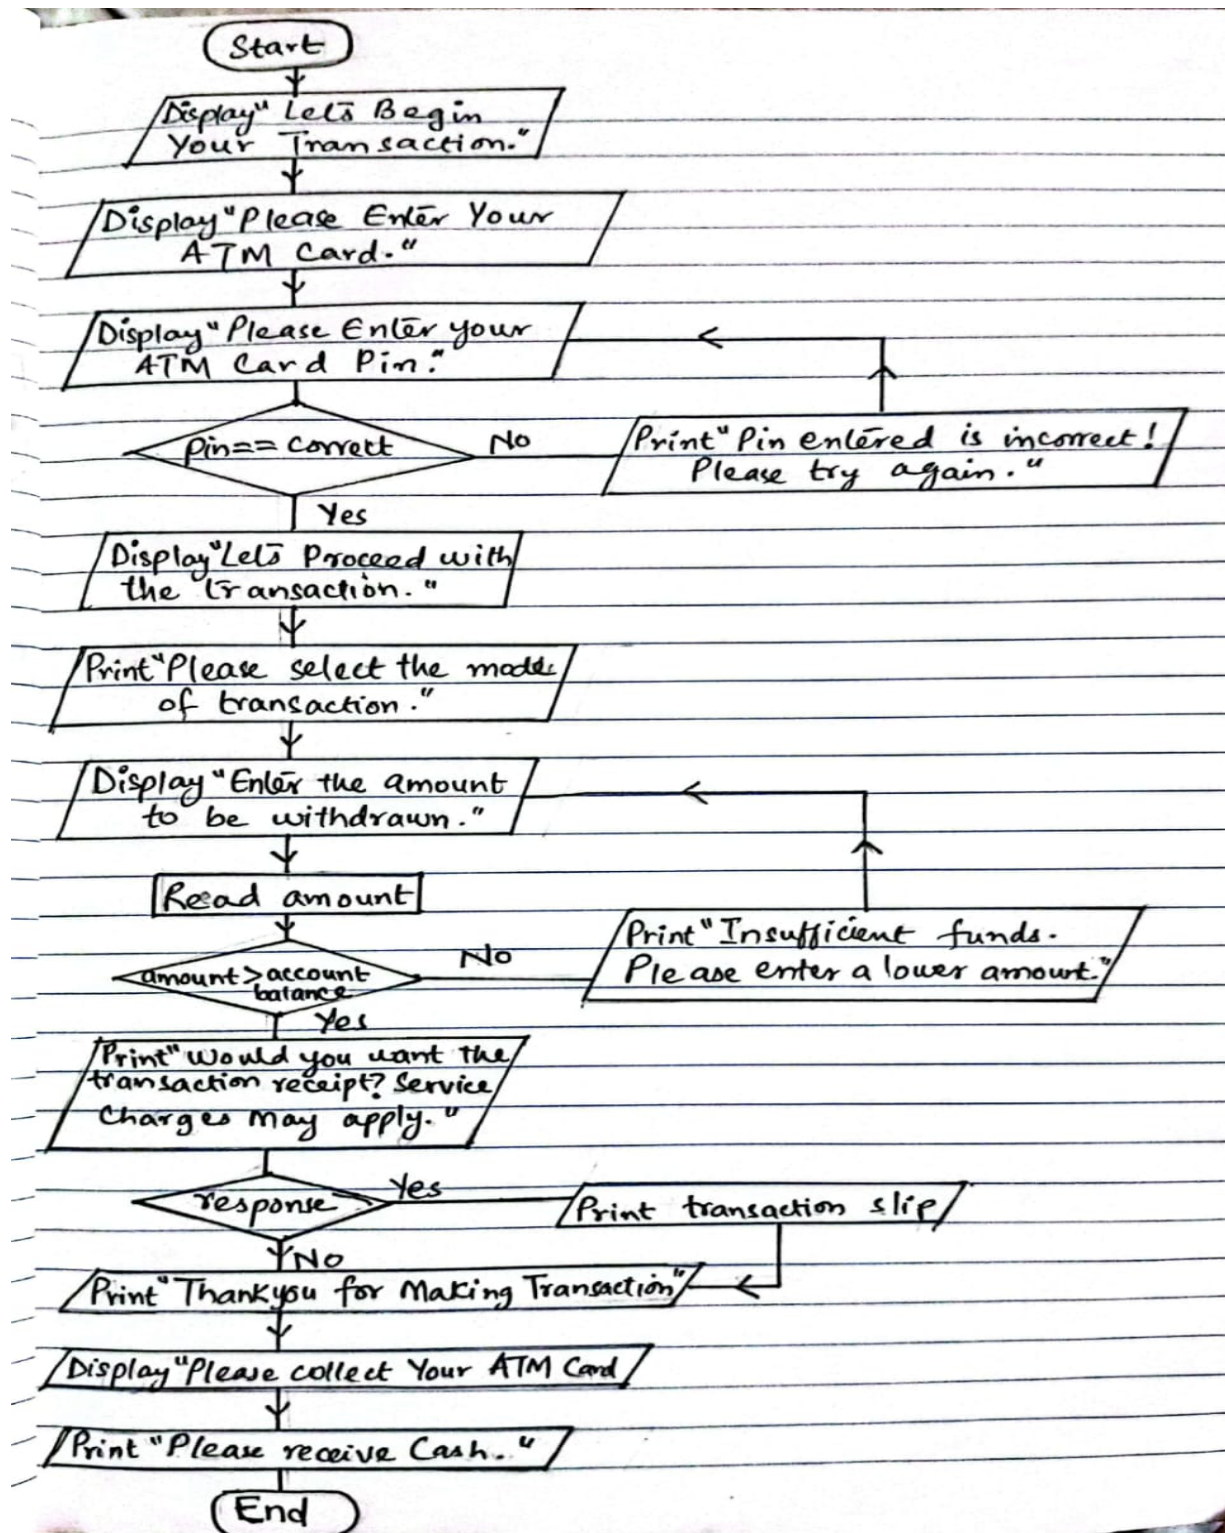 Start
Display "Lets Begin
Your Transaction."
Display "Please Enter Your
ATM Card."
Display "Please Enter your
ATM Card Pin."
pin== correct
No
Print "Pin entered is incorrect!
Please try again."
Yes
Display "Lets Proceed with
the transaction."
Print "Please select the mode
of transaction."
Display "Enter the amount
to be withdrawn."
Read amount
amount > account
balance
No
Print "Insufficient funds.
Please enter a lower amount."
Yes
Print "Would you want the
transaction receipt? Service
Charges May apply."
response
Yes
Print transaction slip
No
Print "Thankyou for Making Transaction"
Display "Please collect Your ATM Card
Print "Please receive Cash."
End